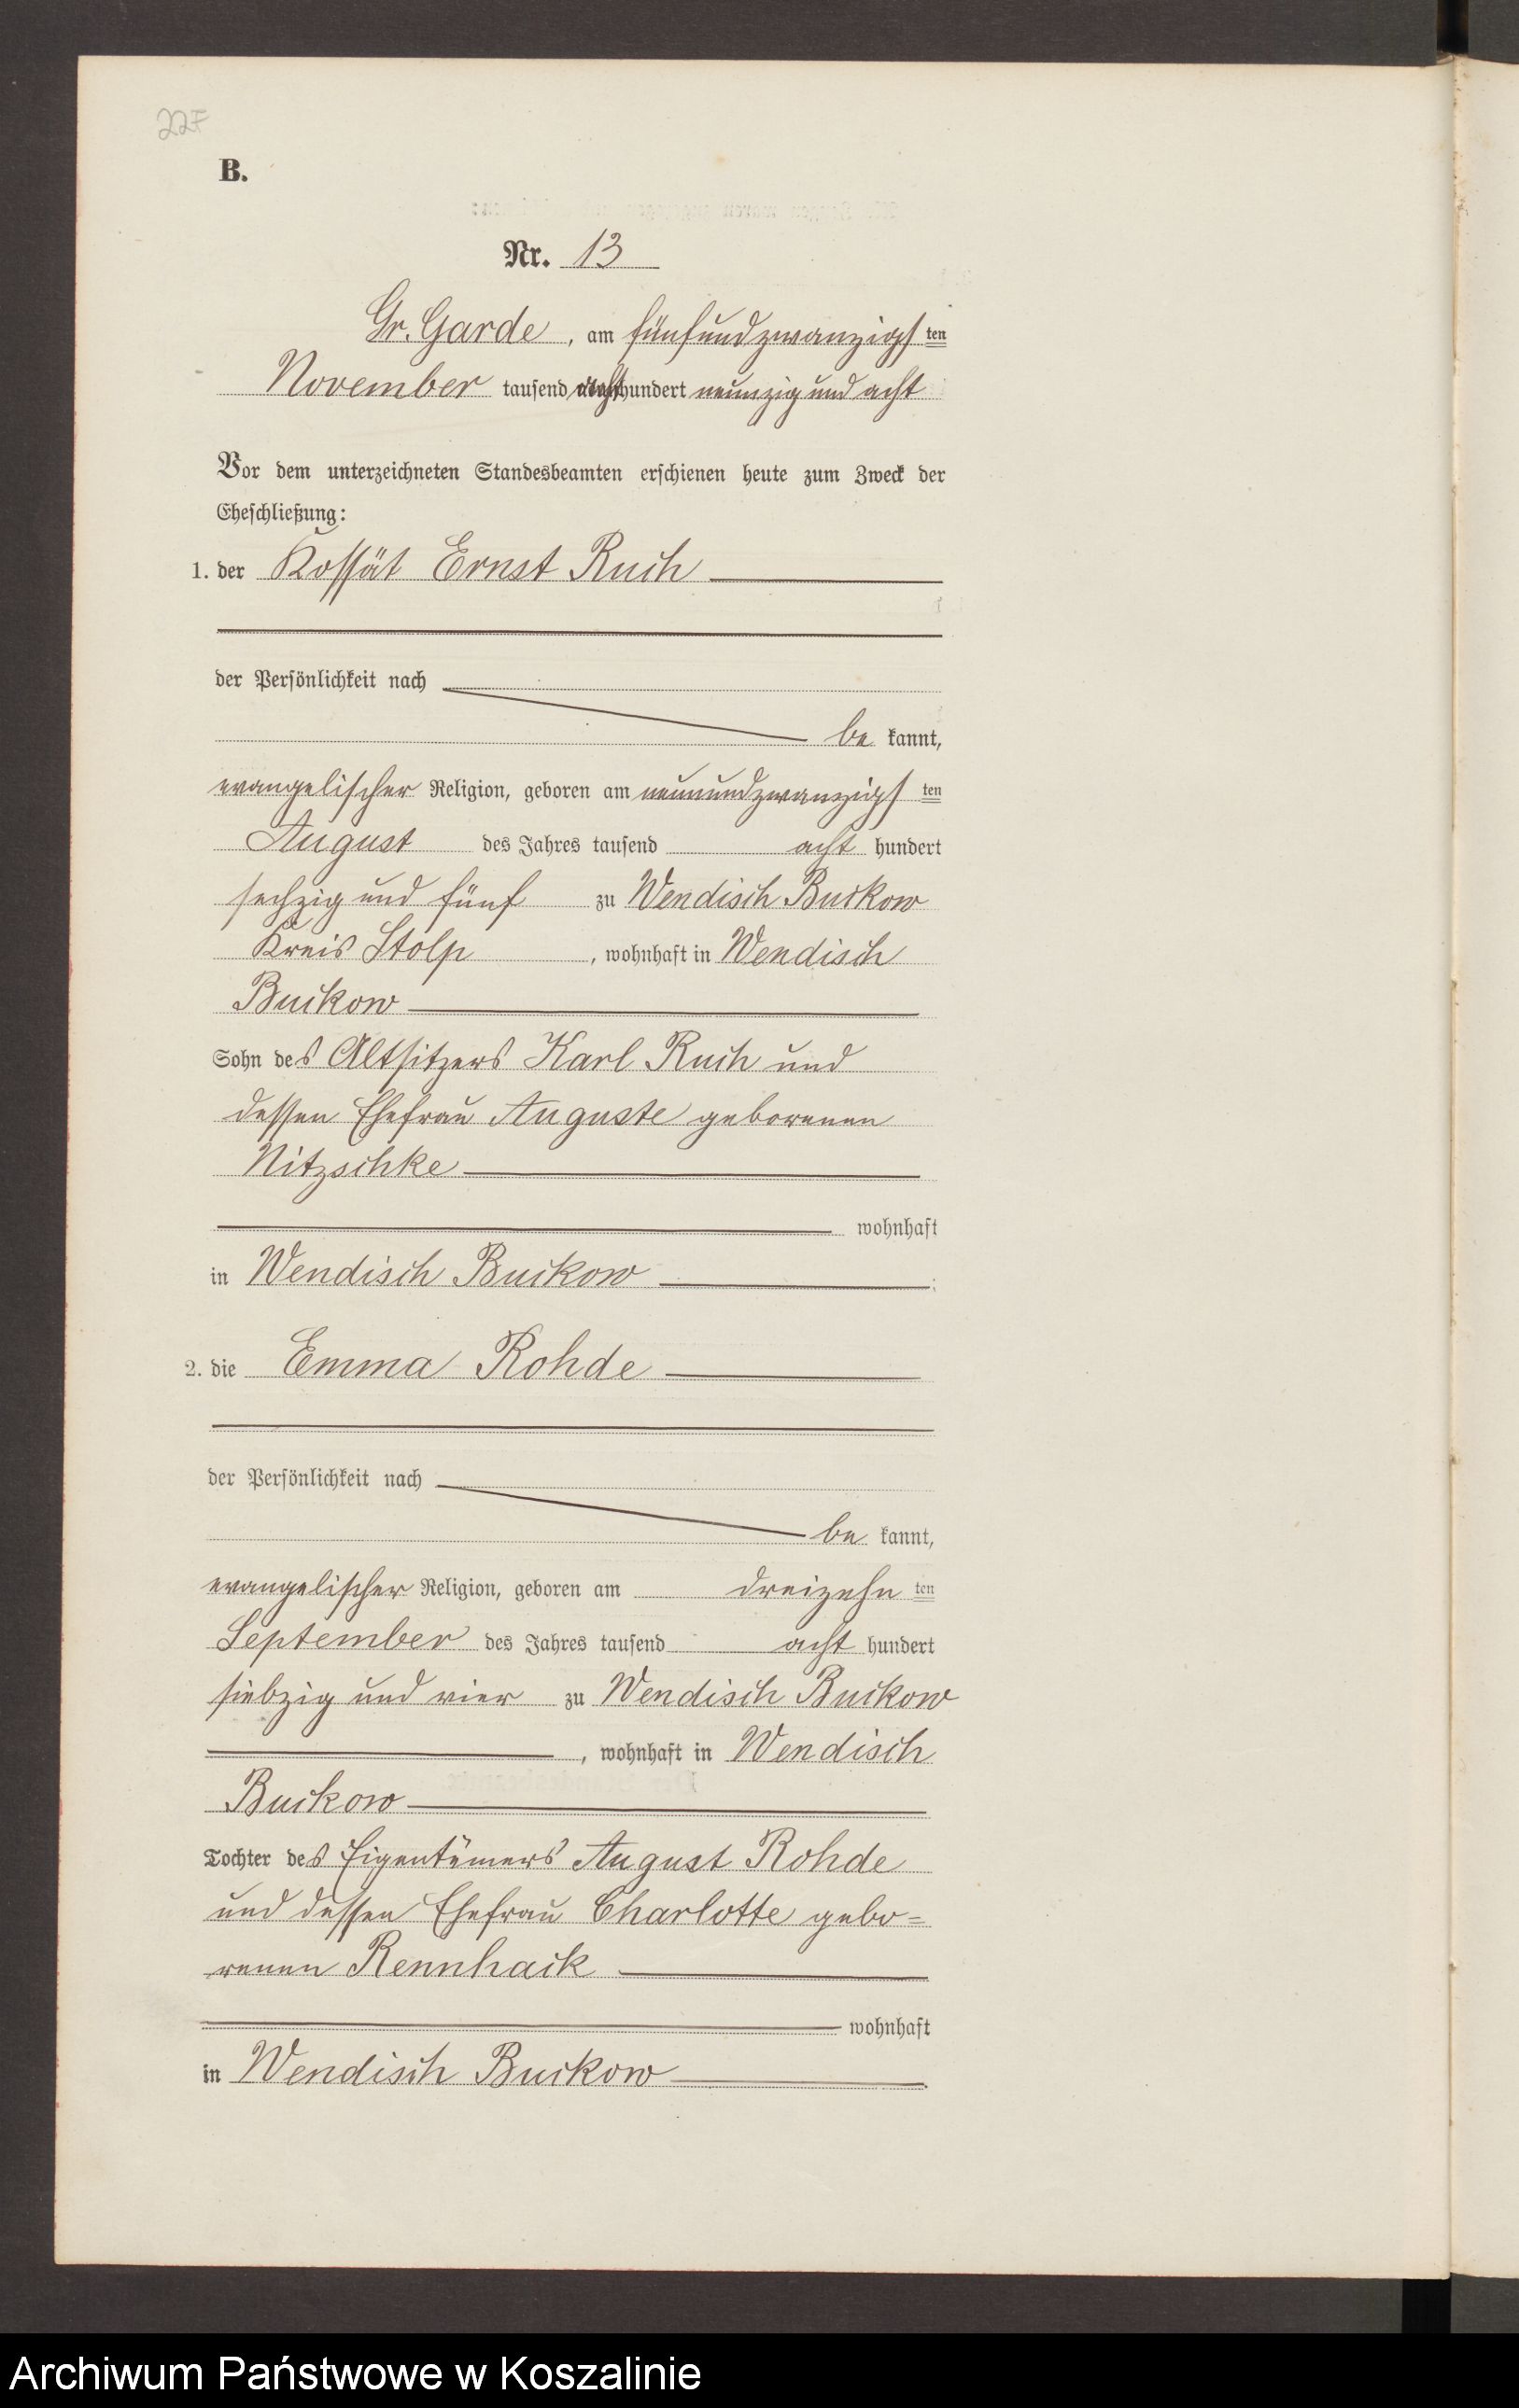 227
B.
Nr. 13
Gr. Garde, am fünfundzwanzigsten
November tausend achthundert neunzig und acht
Vor dem unterzeichneten Standesbeamten erschienen heute zum Zweck der
Eheschließung:
1. der Kossät Ernst Ruch
der Persönlichkeit nach
be kannt,
evangelischer Religion, geboren am neunundzwanzigsten
August des Jahres tausend acht hundert
sechzig und fünf zu Wendisch Buckow
Kreis Stolp, wohnhaft in Wendisch
Buckow
Sohn des Altsitzers Karl Ruch und
dessen Ehefrau Auguste geborenen
Nitzschke
wohnhaft
in Wendisch Buckow;
2. die Emma Rohde
der Persönlichkeit nach
be kannt,
evangelischer Religion, geboren am dreizehnten
September des Jahres tausend acht hundert
siebzig und vier zu Wendisch Buckow
, wohnhaft in Wendisch
Buckow
Tochter des Eigentümers August Rohde
und dessen Ehefrau Charlotte gebo=
renen Rennhack
wohnhaft
in Wendisch Buckow
Archiwum Państwowe w Koszalinie